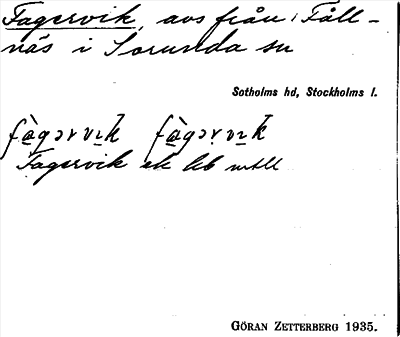 Fagervik, avs från Fåll-
näs i Sorunda sn
Sotholms hd, Stockholms l.
fàgərvɪk fàgərvɪk
Fagervik ek lsb mtll
GÖRAN ZETTERBERG 1935.